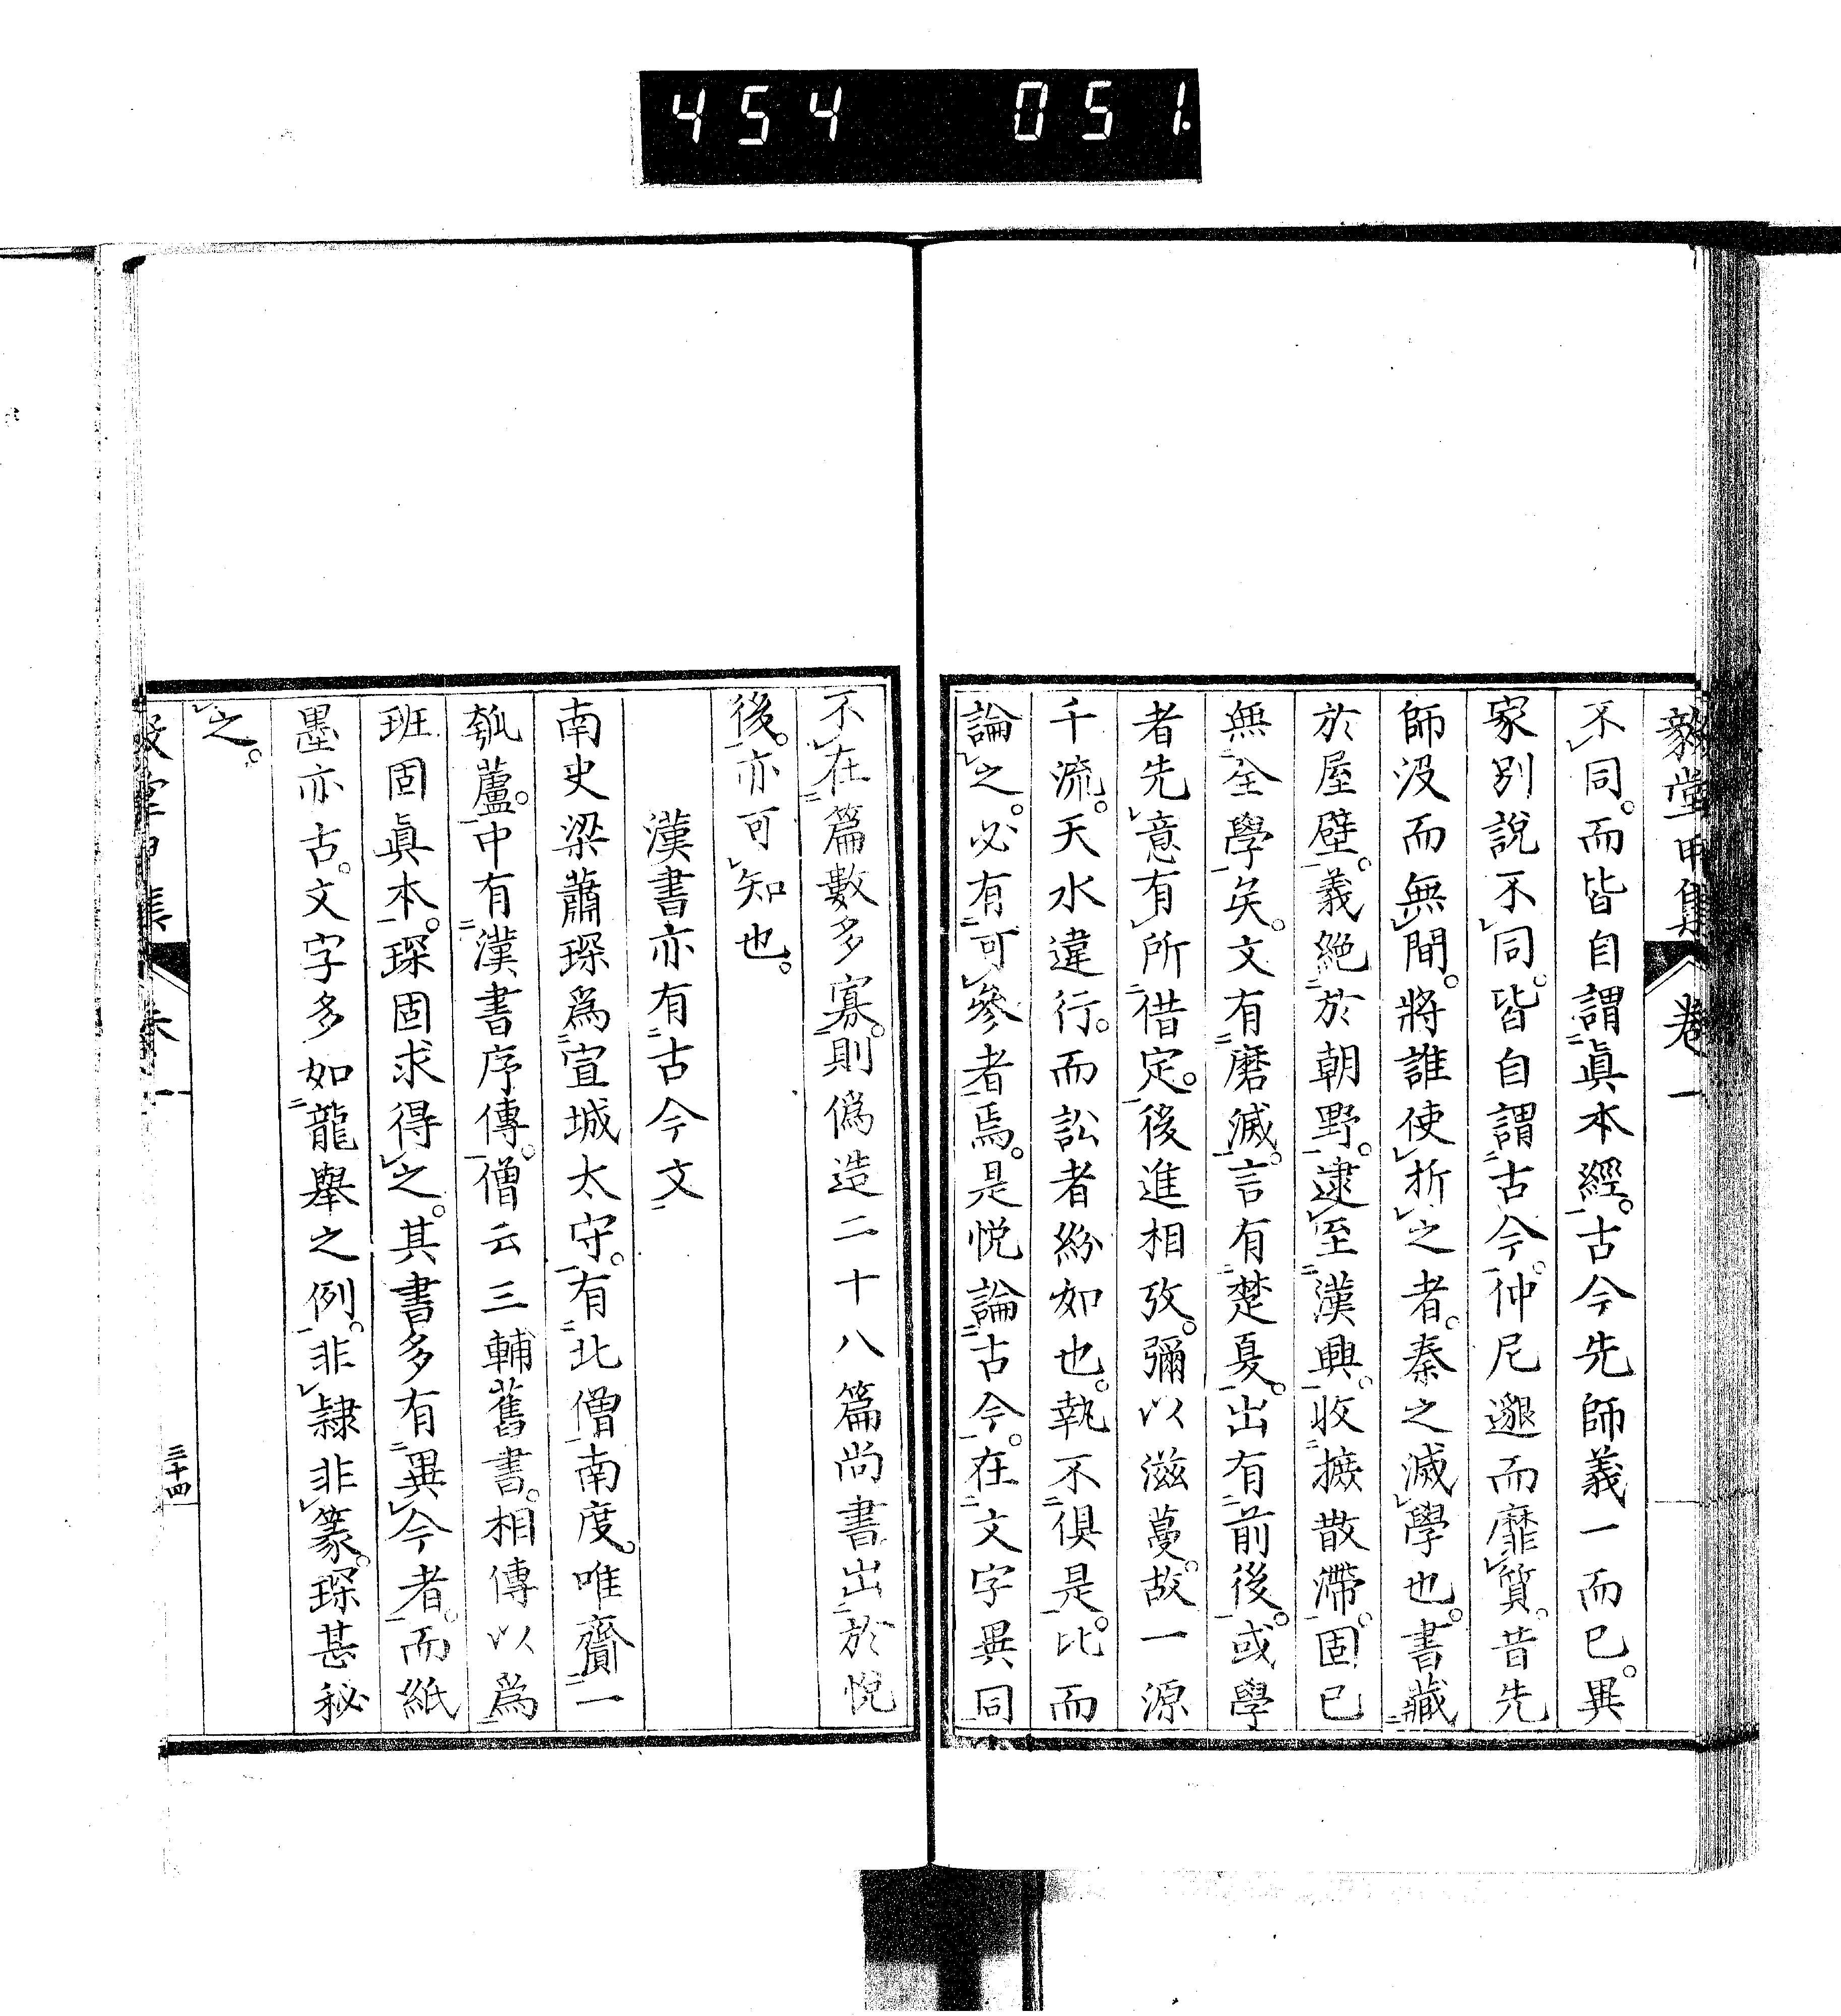 454 051.
毅堂甲集 卷一
不同。而皆自謂眞本經。古今先師義一而已。異
家別說不同。皆自謂古今。仲尼邈而靡質。昔先
師沒而無間。將誰使折之者。秦之滅學也。書藏
於屋壁。義絕於朝野。逮至漢興。收摭散滯。固已
無全學矣。文有磨滅。言有楚夏。出有前後。或學
者先意有所借定。後進相攷。彌以滋蔓。故一源
千流。天水違行。而訟者紛如也。執不俱是。比而
論之。必有可參者焉。是悅論古今。在文字異同
不在篇數多寡。則僞造二十八篇尚書出於悅
後。亦可知也。
漢書亦有古今文
南史梁蕭琛爲宣城太守。有北僧南度。唯齎一
瓠蘆。中有漢書序傳。僧云三輔舊書。相傳以爲
班固眞本。琛固求得之。其書多有異今者。而紙
墨亦古。文字多如龍舉之例。非隷非篆。琛甚秘
之。
毅堂甲集 卷一
三十四